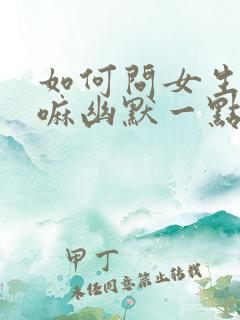 如何問女生
嘛幽默一點
甲丁
未经同意禁止转载